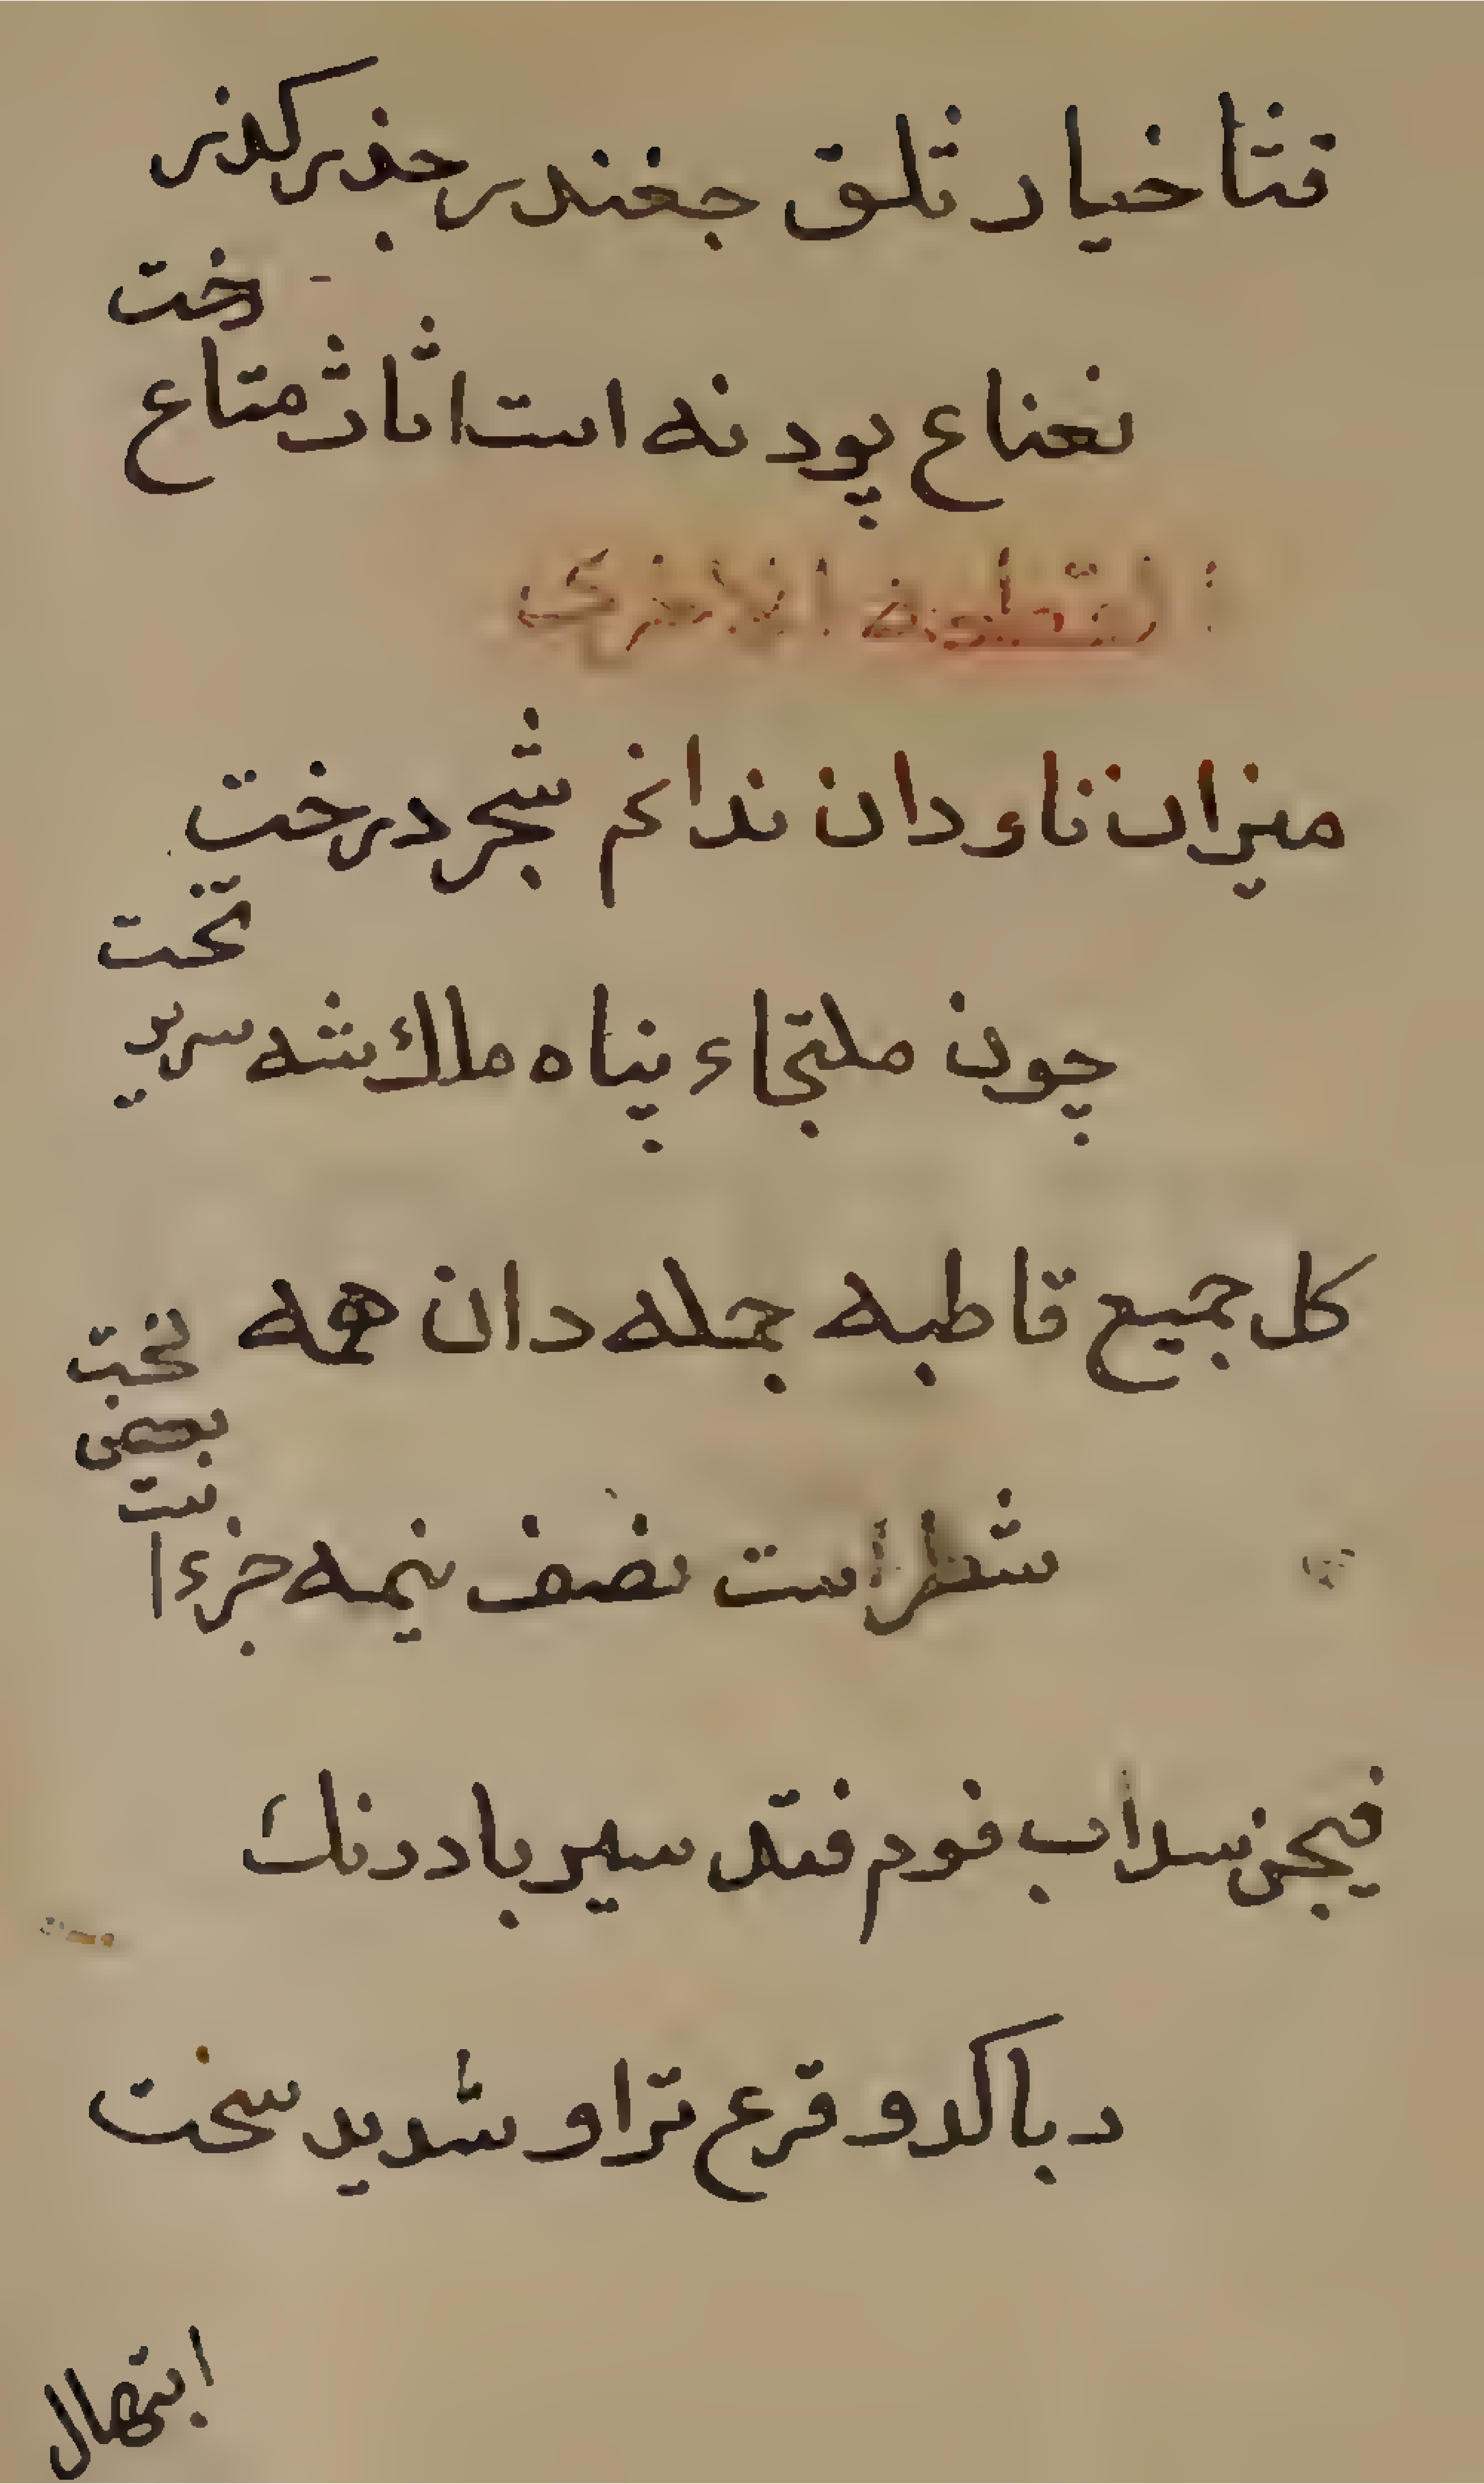 قثا خیار ثلق جغندر جذر کذر
نعناع پودنه است اثاث متاع
رخت
القطعة الاخری
میزان ناودان ندانم شجر درخت
چون ملتجاء پناه ملك شه سریر
تخت
كل جمیع قاطبه جمله دان همه
شطر است نصف نیمه جزءا
بعض
فیجن سداب فوم فثد سیر بادرنك
دبا کدو قرع ترا و شدید سخت
ابتهال